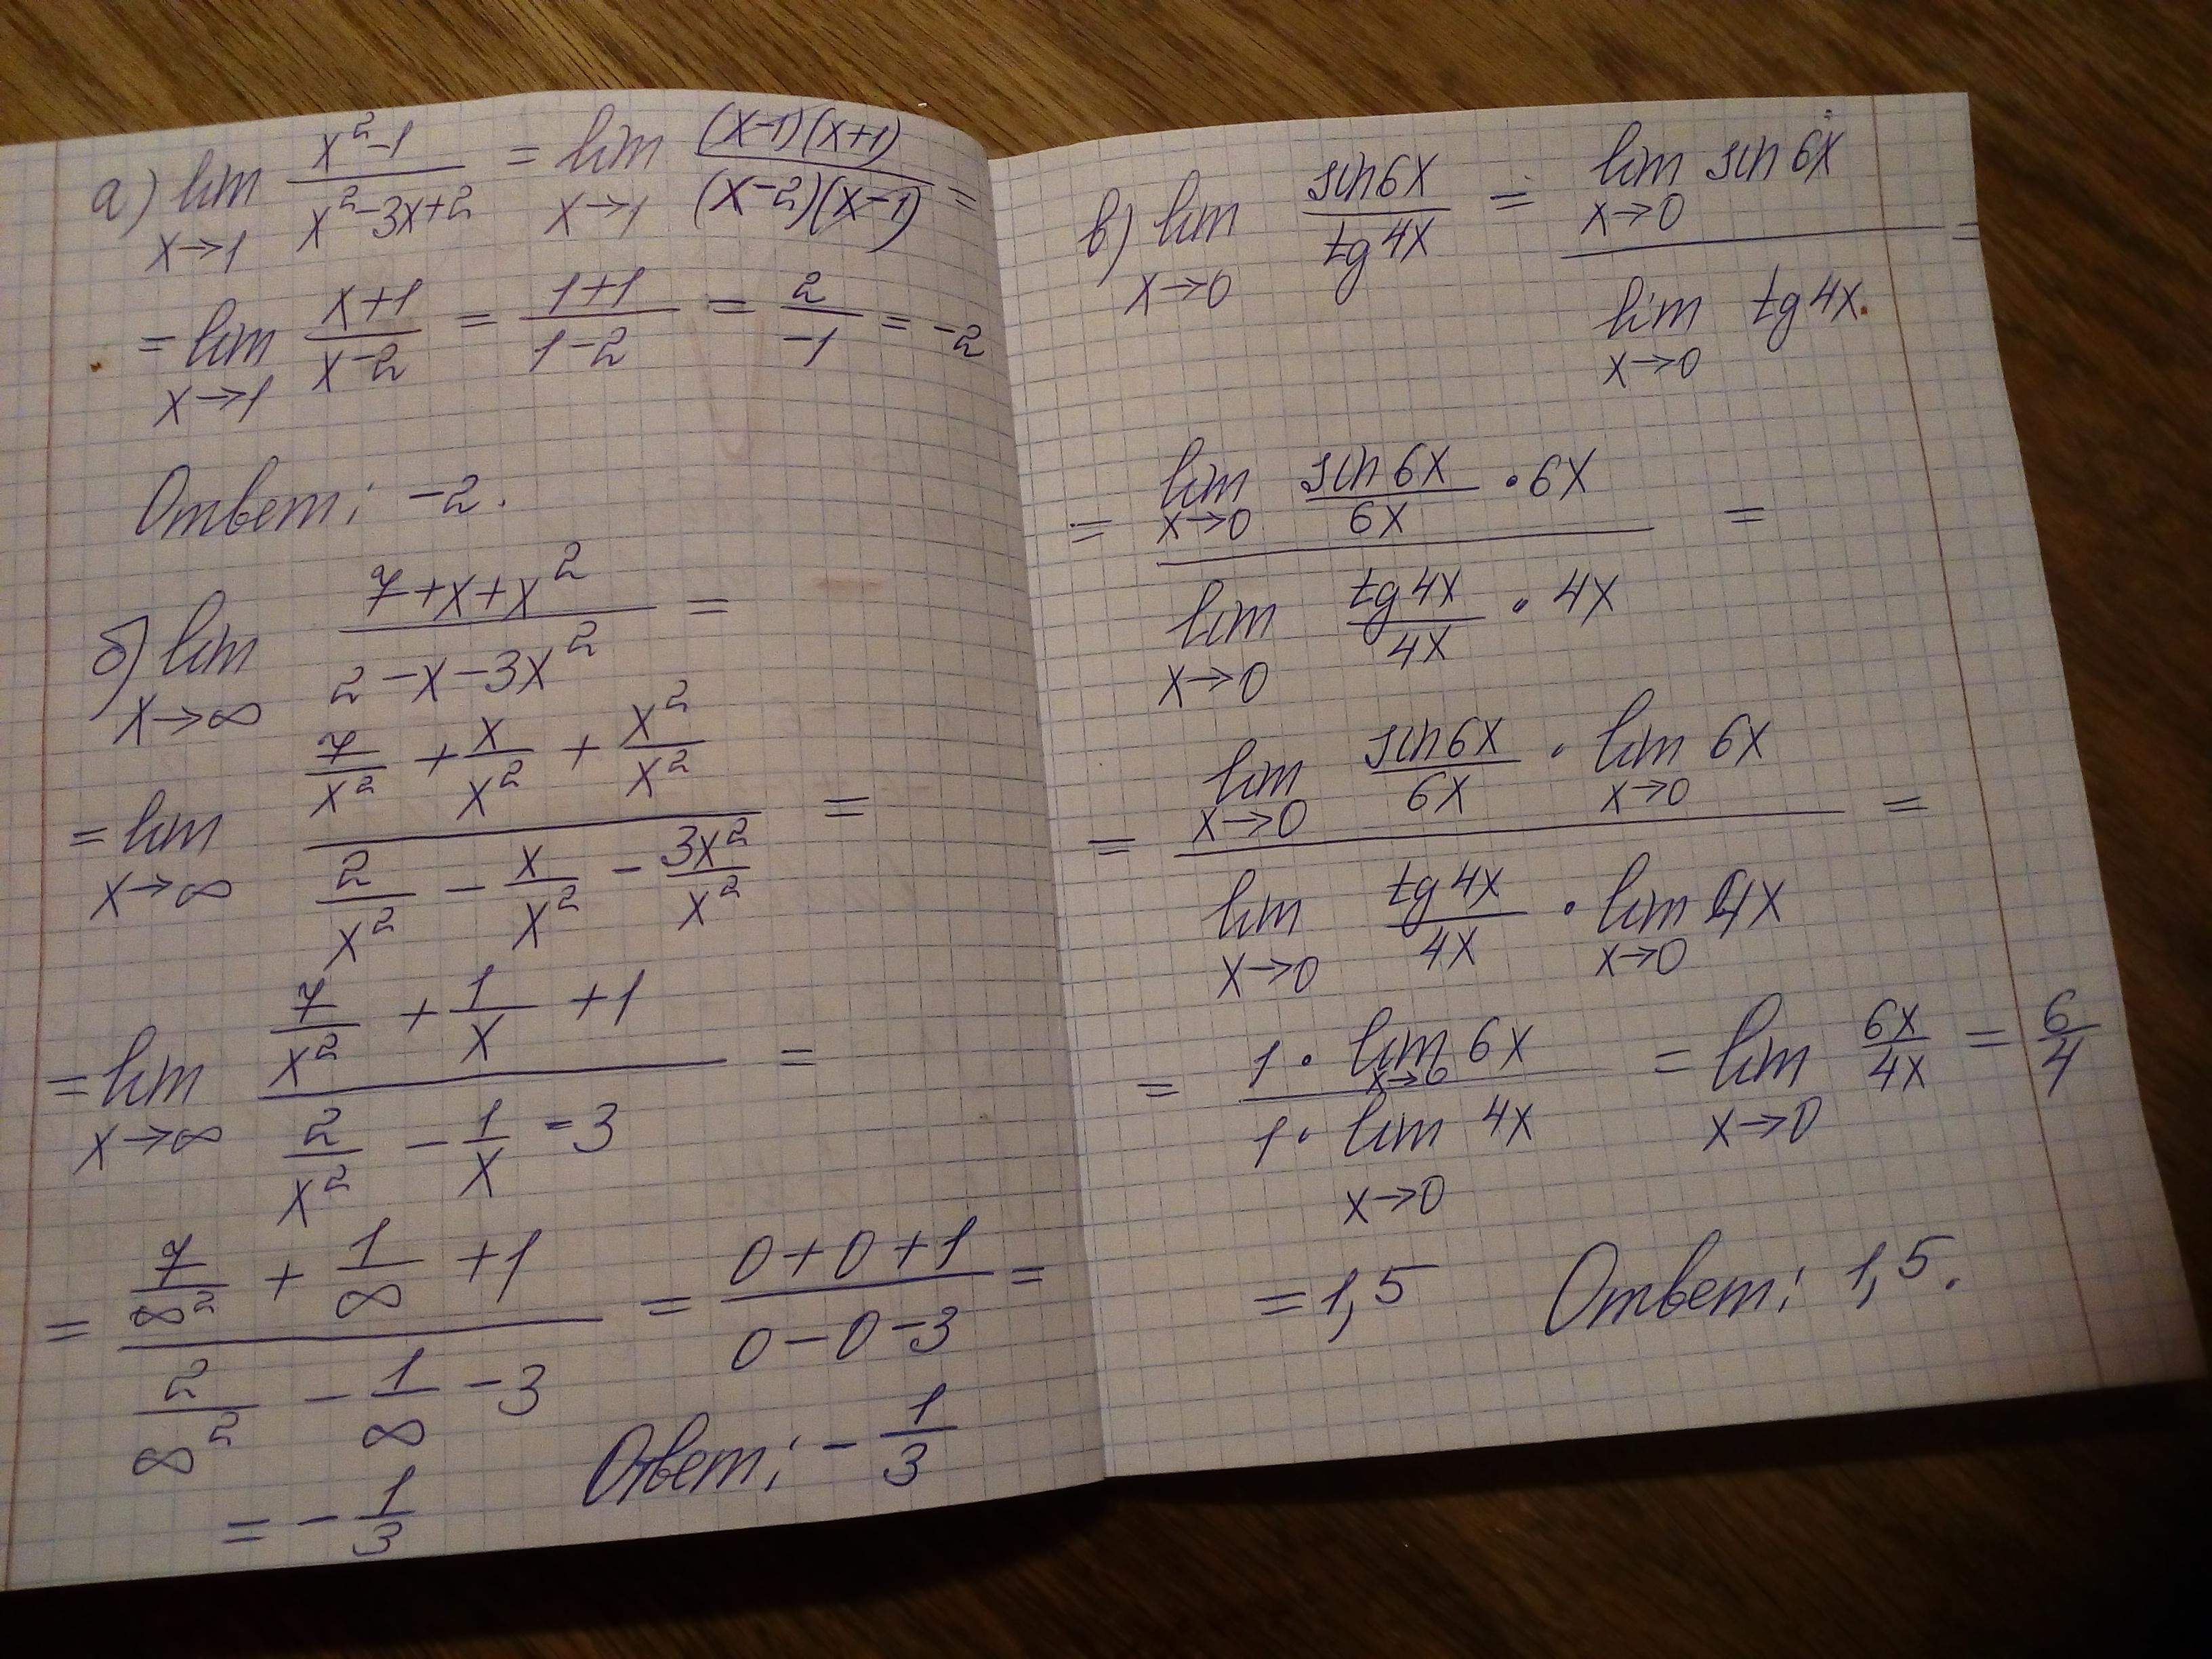 а) lim x→1 (x²-1)/(x²-3x+2) = lim x→1 ((x-1)(x+1))/((x-2)(x-1)) =
= lim x→1 (x+1)/(x-2) = (1+1)/(1-2) = 2/-1 = -2
Ответ: -2.
б) lim x→∞ (7+x+x²)/(2-x-3x²) =
= lim x→∞ (7/x² + x/x² + x²/x²)/(2/x² - x/x² - 3x²/x²) =
= lim x→∞ (7/x² + 1/x + 1)/(2/x² - 1/x - 3) =
= (7/∞² + 1/∞ + 1)/(2/∞² - 1/∞ - 3) = (0+0+1)/(0-0-3) =
= -1/3 Ответ: -1/3
в) lim x→0 (sin6x)/(tg4x) = (lim x→0 sin6x)/(lim x→0 tg4x) =
= (lim x→0 (sin6x)/(6x) · 6x)/(lim x→0 (tg4x)/(4x) · 4x) =
= (lim x→0 (sin6x)/(6x) · lim x→0 6x)/(lim x→0 (tg4x)/(4x) · lim x→0 4x) =
= (1 · lim x→0 6x)/(1 · lim x→0 4x) = lim x→0 (6x)/(4x) = 6/4
= 1,5 Ответ: 1,5.